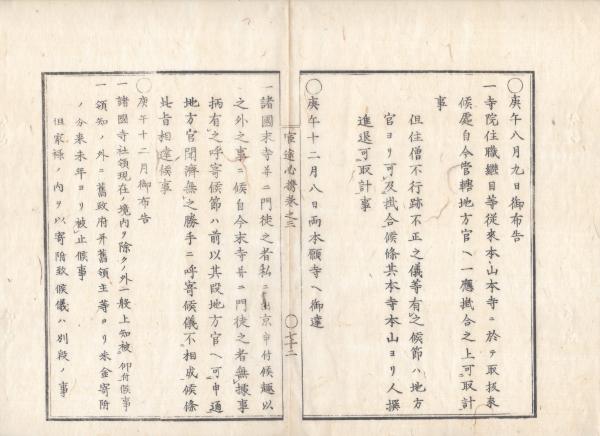 ◯庚午八月九日御布告
一寺院住職継目等従来本山本寺ニ於テ取扱来
候處自今管轄地方官ヘ一應掛合之上可取計
事
但住僧不行跡不正之儀等有之候節ハ地方
官ヨリ可及掛合候條其本寺本山ヨリ人撰
進退可取計事
◯庚午十二月八日両本願寺ヘ御達
官途心携巻之三
◯七十二
一諸國末寺并ニ門徒之者私ニ出京申付候趣以
之外之事ニ候自今末寺并ニ門徒之者無據事
柄有之呼寄候節ハ前以其段地方官ヘ可申通
地方官聞濟無之勝手ニ呼寄候儀不相成候條
此旨相達候事
◯庚午十二月御布告
一諸國寺社領現在ノ境内ヲ除クノ外一般上知被仰付候事
一領知ノ外ニ舊政府并舊領主等ヨリ米金寄附
ノ分来未年ヨリ被止候事
但家禄ノ内ヲ以寄附致候儀ハ別段ノ事